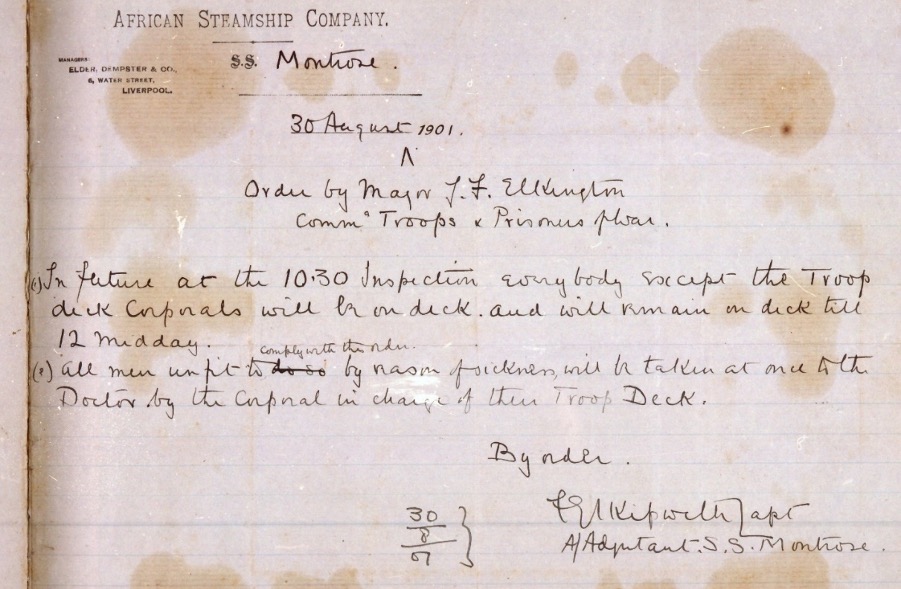 AFRICAN STEAMSHIP COMPANY.
MANAGERS:
ELDER, DEMPSTER & CO.,
6, WATER STREET,
LIVERPOOL.
S.S. Montrose.
30 August 1901.
Order by Major J. F. Elkington
Comm^g Troops & Prisoners of War.
(1) In future at the 10.30 Inspection everybody except the Troop
deck Corporals will be on deck. and will remain on deck till
12 Midday.
comply with this order.
(2) All men unfit to do so by reason of sickness, will be taken at once to the
Doctor by the Corporal in charge of their Troop Deck.
By order.
30
8
01
Capt
A/Adjutant. S.S. Montrose.